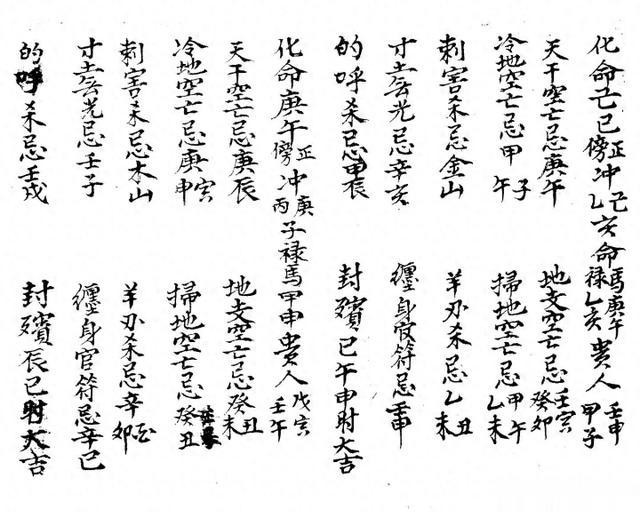 化命己巳正傍冲己乙亥命馬庚午禄乙亥貴人壬申甲子
天干空亡忌庚午 地支空亡忌壬寅癸卯
冷地空亡忌甲子午 掃地空亡忌甲午乙未
刺害杀忌金山 羊刃杀忌乙丑未
寸土無光忌辛亥 纏身官符忌壬申
的呼杀忌甲辰 封殯巳午申时大吉
化命庚午正傍冲庚丙子禄馬甲申貴人戊寅壬午
天干空亡忌庚辰 地支空亡忌癸丑未
冷地空亡忌庚寅申 掃地空亡忌癸丑
刺害杀忌木山 羊刃杀忌辛酉卯
寸土無光忌壬子 纏身官符忌辛巳
的呼杀忌壬戌 封殯辰巳时大吉